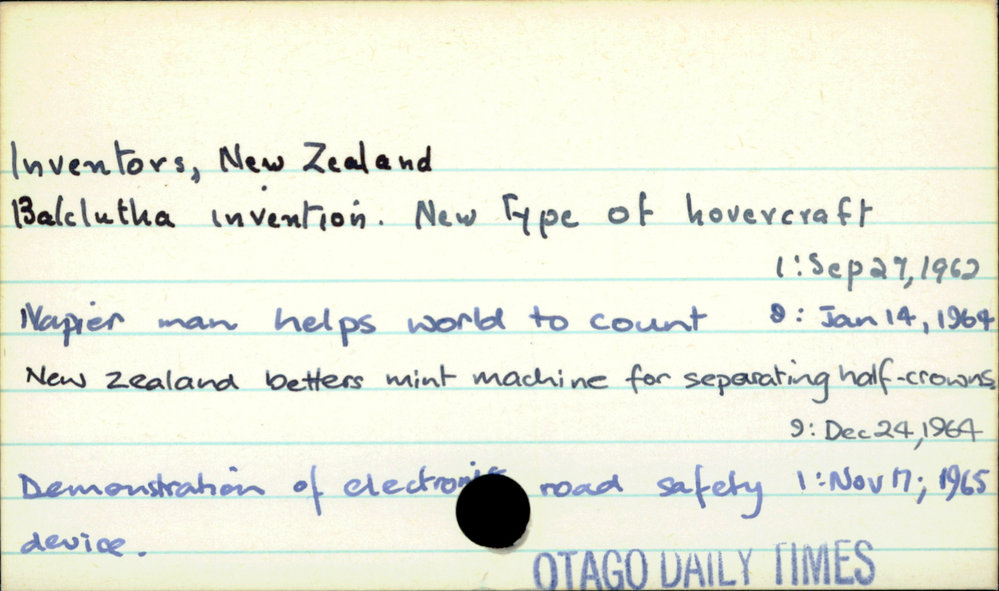 Inventors, New Zealand
Balclutha invention. New Type of hovercraft
1: Sep 27, 1962
Napier man helps world to count 9: Jan 14, 1964
New Zealand betters mint machine for separating half-crowns.
9: Dec 24, 1964
Demonstration of electronic road safety 1: Nov 17; 1965
device.
OTAGO DAILY TIMES